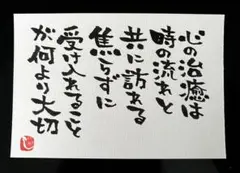 心の治癒は
時の流れと
共に訪れる
焦らずに
受け入れること
が何より大切